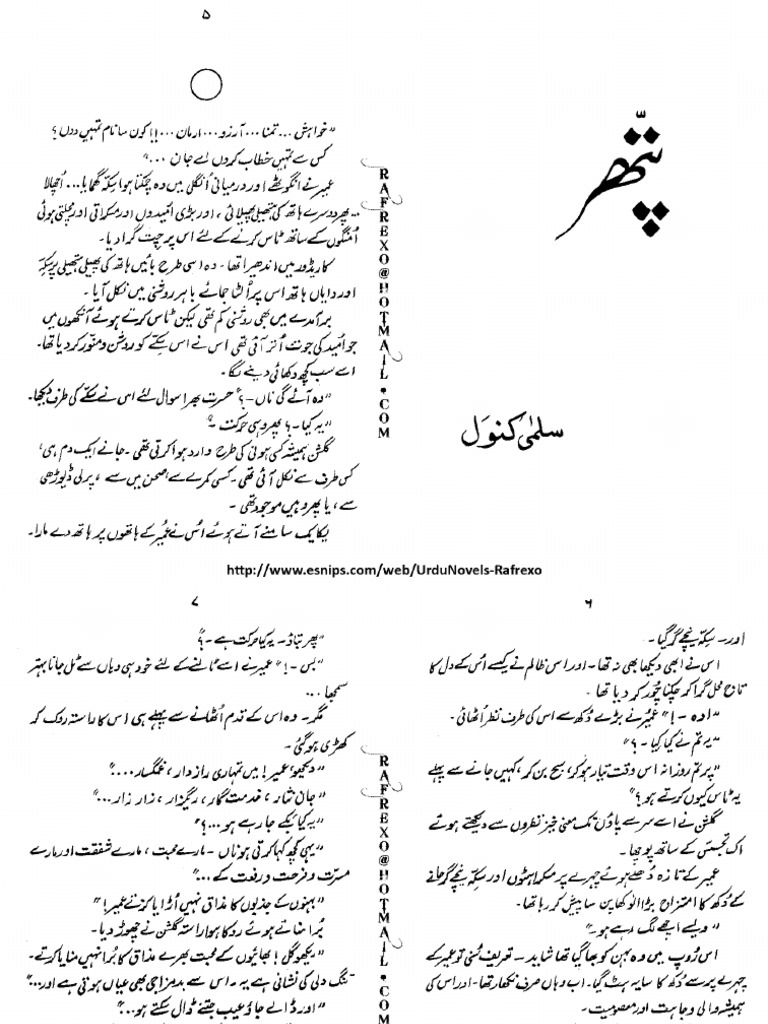 پتھر
سلمیٰ کنول
۵
"خواہش ... تمنا ... آرزو ... ارمان ... !! کون سا نام تمہیں دوں؟
کس سے تمہیں خطاب کروں اے جان ..."
عمیر نے انگوٹھے اور درمیانی اُنگلی میں وہ چمکتا ہوا سِکّہ گھمایا... اُچھالا
... پھر دوسرے ہاتھ کی ہتھیلی پھیلائی، اور بڑی اُمّیدوں اور مسکراتی اور مچلتی ہوئی
اُمنگوں کے ساتھ ٹاس کرنے کے لئے اس پر چِت گرا دیا۔
کاریڈور میں اندھیرا تھا۔ وہ اسی طرح بائیں ہاتھ کی پھیلی ہتھیلی پر سِکّہ
اور دایاں ہاتھ اس پر اُلٹا جمائے باہر روشنی میں نکل آیا۔
برآمدے میں بھی روشنی کم تھی لیکن ٹاس کرتے ہوئے آنکھوں میں
جو اُمید کی جوت اُتر آئی تھی اس نے اس سِکّے کو روشن و منوّر کر دیا تھا۔
اسے سب کچھ دکھائی دینے لگا۔
"وہ آئے گی ناں -؟" حسرت بھرا سوال لئے اس نے سکّے کی طرف دیکھا۔
"یہ کیا -؟ پھر وہی حرکت -"
گلشن ہمیشہ کسی ہونی کی طرح وارد ہوا کرتی تھی۔ جانے ایک دم ہی،
کس طرف سے نکل آئی تھی۔ کسی کمرے سے، صحن میں سے، پرلی ڈیوڑھی
سے، یا پھر وہیں موجود تھی۔
یکایک سامنے آتے ہوئے اُس نے عمیر کے ہاتھوں پر ہاتھ دے مارا۔
RAFREXO@HOTMAIL.COM
http://www.esnips.com/web/UrduNovels-Rafrexo
۶
اور - سِکّہ نیچے گر گیا۔
اس نے ابھی دیکھا بھی نہ تھا۔ اور اس ظالم نے کیسے اُس کے دل کا
تاج محل گرا کر چکنا چُور کر دیا تھا۔
"اوہ -!" عمیر نے بڑے دُکھ سے اس کی طرف نظر اُٹھائی۔
"یہ تم نے کیا کیا -؟"
"پر تم روزانہ اس وقت تیار ہو کر، سج بن کر، کہیں جانے سے پہلے
یہ ٹاس کیوں کرتے ہو؟"
گلشن نے اسے سر سے پاؤں تک معنی خیز نظروں سے دیکھتے ہوئے
اک تجسّس کے ساتھ پوچھا۔
عمیر کے تازہ دُھلے ہوئے چہرے پر مسکراہٹوں اور سِکّہ نیچے گر جانے
کے دُکھ کا امتزاج بڑا انوکھا پن سا پیش کر رہا تھا۔
"ویسے اچھے لگ رہے ہو۔"
اس رُوپ میں وہ بہن کو بھا گیا تھا شاید۔ تعریف سُنی تو عمیر کے
چہرے پر سے دُکھ کا سایہ ہٹ گیا۔ اب وہاں صرف نکھار تھا۔ اور اس کی
ہمیشہ والی وجاہت اور معصومیت۔
۷
"پھر بتاؤ۔ یہ کیا حرکت ہے -؟"
"بس -!" عمیر نے اسے ٹالنے کے لئے خود ہی وہاں سے ٹل جانا بہتر
سمجھا ...
مگر - وہ اس کے قدم اُٹھانے سے پہلے ہی اس کا راستہ روک کر
کھڑی ہو گئی۔
"دیکھو عمیر! میں تمہاری رازدار، غمگسار ....."
"جان نثار، خدمت گار، ریگزار، زار زار..."
"یہ کیا بکے جا رہے ہو...؟"
"یہی کچھ کہا کرتی ہو ناں - مارے محبت، مارے شفقت اور مارے
مسرّت و فرحت و رفعت کے ..."
"بہنوں کے جذبوں کا مذاق نہیں اُڑایا کرتے عمیر!"
بُرا مناتے ہوئے روکا ہوا راستہ گلشن نے چھوڑ دیا۔
"دیکھو گل! بھائیوں کے محبت بھرے مذاق کا بُرا نہیں منایا کرتے۔
تنگ دلی کی نشانی ہے یہ۔ اس سے بدمزاجی بھی عیاں ہوتی ہے اور..."
"اور ڈالے جاؤ عیب جتنے ڈال سکتے ہو..."
RAFREXO@HOTMAIL.COM